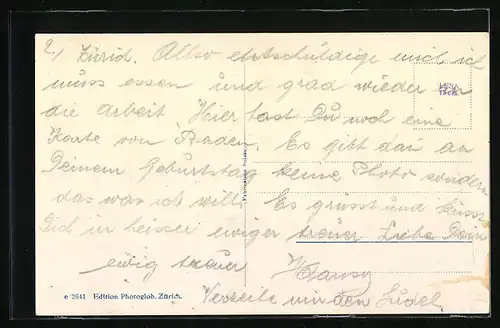 2/ Zürich. Also entschuldige mich ich
muss essen und grad wieder an
die Arbeit. Hier hast Du noch eine
Karte von Baden. Es gibt an
Deinem Geburtstag keine Photo sondern
das was ich will. Es grüsst und küsst
Dich in heisser ewiger treuer Liebe Dein
ewig treuer Hansy
Verzeihe mir den Sudel
e 2641 Edition Photoglob, Zürich.